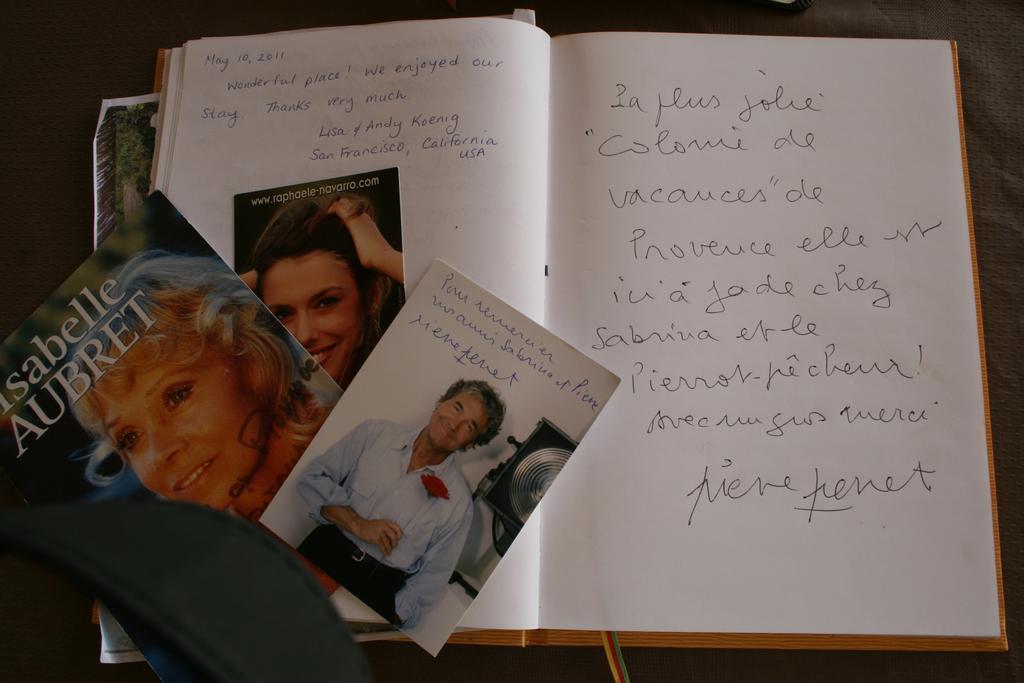 May 10, 2011
Wonderful place! We enjoyed our
stay. Thanks very much.
Lisa & Andy Koenig
San Francisco, California
USA
www.raphaele-navarro.com
Isabelle
AUBRET
Pour remercier
mes amis Sabrina et Pierre
Pierre Perret
La plus jolie
"Colonie de
vacances" de
Provence elle est
ici à jade chez
Sabrina et le
Pierrot-pêcheur!
avec un gros merci
Pierre Perret